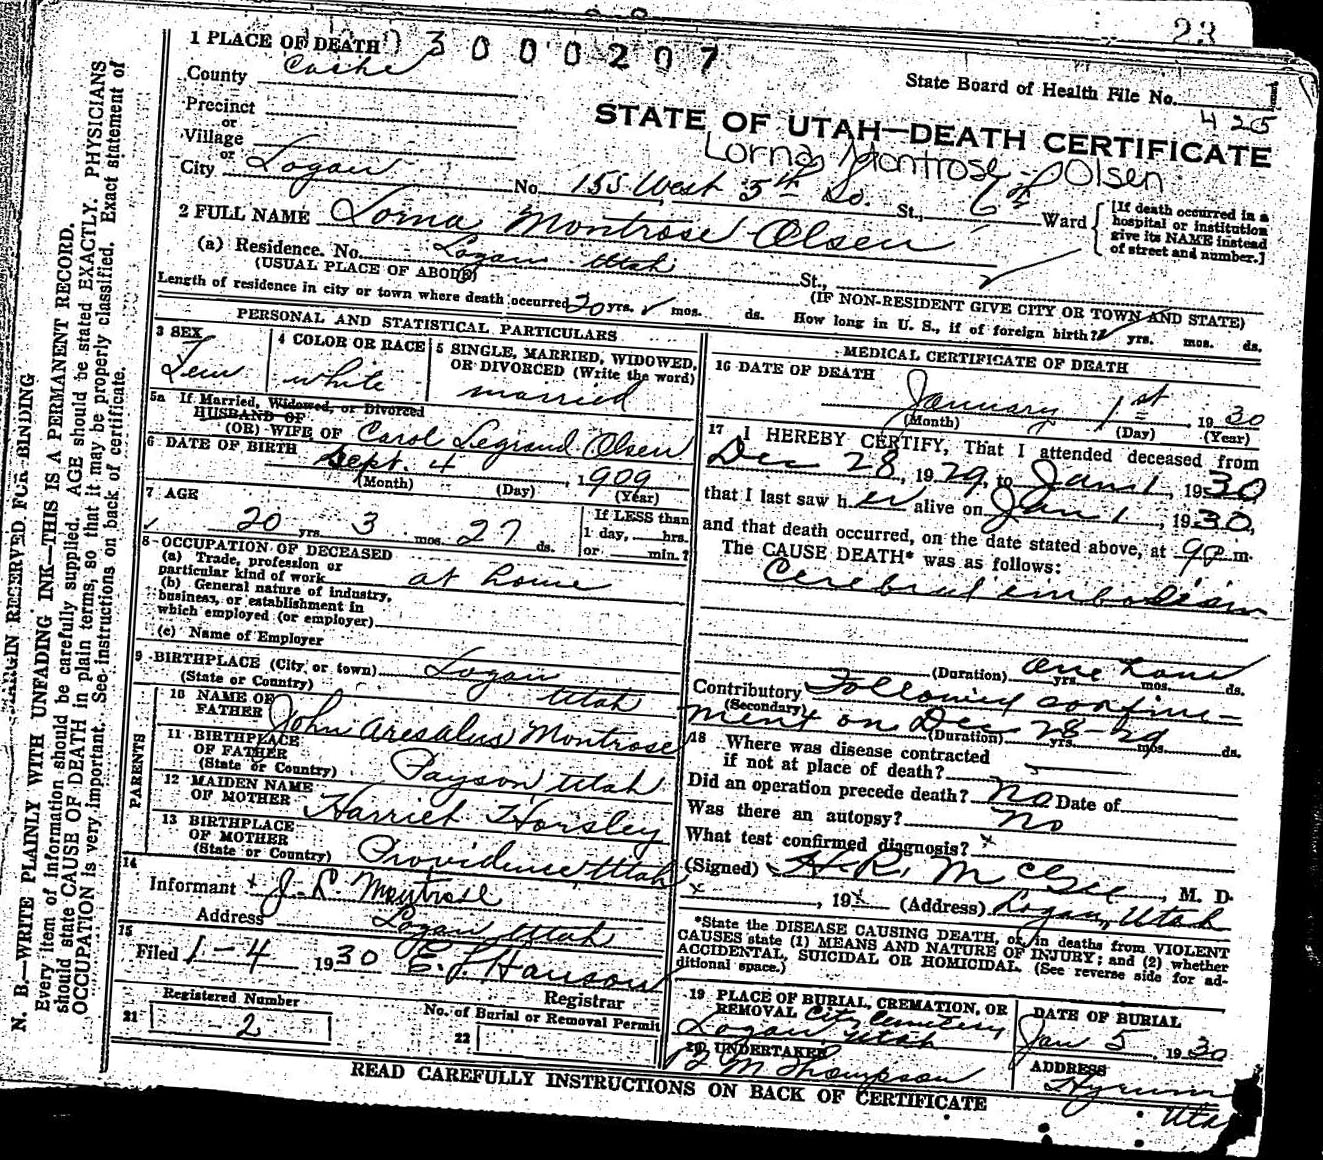 23
1 PLACE OF DEATH
3 0 0 0 0 2 0 7
County Cache
State Board of Health File No.
425
Precinct
or
Village
or
City Logan No. 155 West 5th So. St., 6th Ward
STATE OF UTAH—DEATH CERTIFICATE
Lorna Montrose Olsen
[If death occurred in a
hospital or institution
give its NAME instead
of street and number.]
2 FULL NAME Lorna Montrose Olsen
(a) Residence. No. Logan Utah St.,
(USUAL PLACE OF ABODE)
(IF NON-RESIDENT GIVE CITY OR TOWN AND STATE)
Length of residence in city or town where death occurred 20 yrs. mos. ds. How long in U. S., if of foreign birth? yrs. mos. ds.
PERSONAL AND STATISTICAL PARTICULARS
3 SEX
Fem
4 COLOR OR RACE
white
5 SINGLE, MARRIED, WIDOWED,
OR DIVORCED (Write the word)
married
5a If Married, Widowed, or Divorced
HUSBAND OF
(OR) WIFE OF Carol Legrand Olsen
6 DATE OF BIRTH
Sept. 4, 1909
(Month) (Day) (Year)
7 AGE
20 yrs. 3 mos. 27 ds.
If LESS than
1 day, hrs.
or min.?
8 OCCUPATION OF DECEASED
(a) Trade, profession or
particular kind of work at home
(b) General nature of industry,
business, or establishment in
which employed (or employer)
(c) Name of Employer
9 BIRTHPLACE (City or town) Logan
(State or Country) Utah
PARENTS
10 NAME OF
FATHER John Aresalus Montrose
11 BIRTHPLACE
OF FATHER
(State or Country) Payson, Utah
12 MAIDEN NAME
OF MOTHER Harriet Horsley
13 BIRTHPLACE
OF MOTHER
(State or Country) Providence, Utah
14
Informant J. L. Montrose
Address Logan Utah
15
Filed 1-4 1930 E. L. Hanson
Registrar
Registered Number
21 2
No. of Burial or Removal Permit
22
MEDICAL CERTIFICATE OF DEATH
16 DATE OF DEATH
January 1st 1930
(Month) (Day) (Year)
17 I HEREBY CERTIFY, That I attended deceased from
Dec 28, 1929, to Jan 1, 1930
that I last saw her alive on Jan 1, 1930,
and that death occurred, on the date stated above, at 9 P m.
The CAUSE DEATH* was as follows:
Cerebral embolism
(Duration) yrs. mos. ds.
one hour
Contributory Followed confine-
(Secondary)
ment on Dec 28-29
(Duration) yrs. mos. ds.
18 Where was disease contracted
if not at place of death?
Did an operation precede death? no Date of
Was there an autopsy? no
What test confirmed diagnosis? x
(Signed) H. R. McGee, M. D.
x , 19x (Address) Logan, Utah
*State the DISEASE CAUSING DEATH, or, in deaths from VIOLENT
CAUSES state (1) MEANS AND NATURE OF INJURY; and (2) whether
ACCIDENTAL, SUICIDAL OR HOMICIDAL. (See reverse side for ad-
ditional space.)
19 PLACE OF BURIAL, CREMATION, OR
REMOVAL City Cemetery
Logan, Utah
DATE OF BURIAL
Jan 5, 1930
20 UNDERTAKER
M Thompson
ADDRESS
Hyrum
Utah
READ CAREFULLY INSTRUCTIONS ON BACK OF CERTIFICATE
MARGIN RESERVED FOR BINDING
N. B.—WRITE PLAINLY WITH UNFADING INK—THIS IS A PERMANENT RECORD.
Every item of information should be carefully supplied. AGE should be stated EXACTLY. PHYSICIANS
should state CAUSE OF DEATH in plain terms, so that it may be properly classified. Exact statement of
OCCUPATION is very important. See instructions on back of certificate.